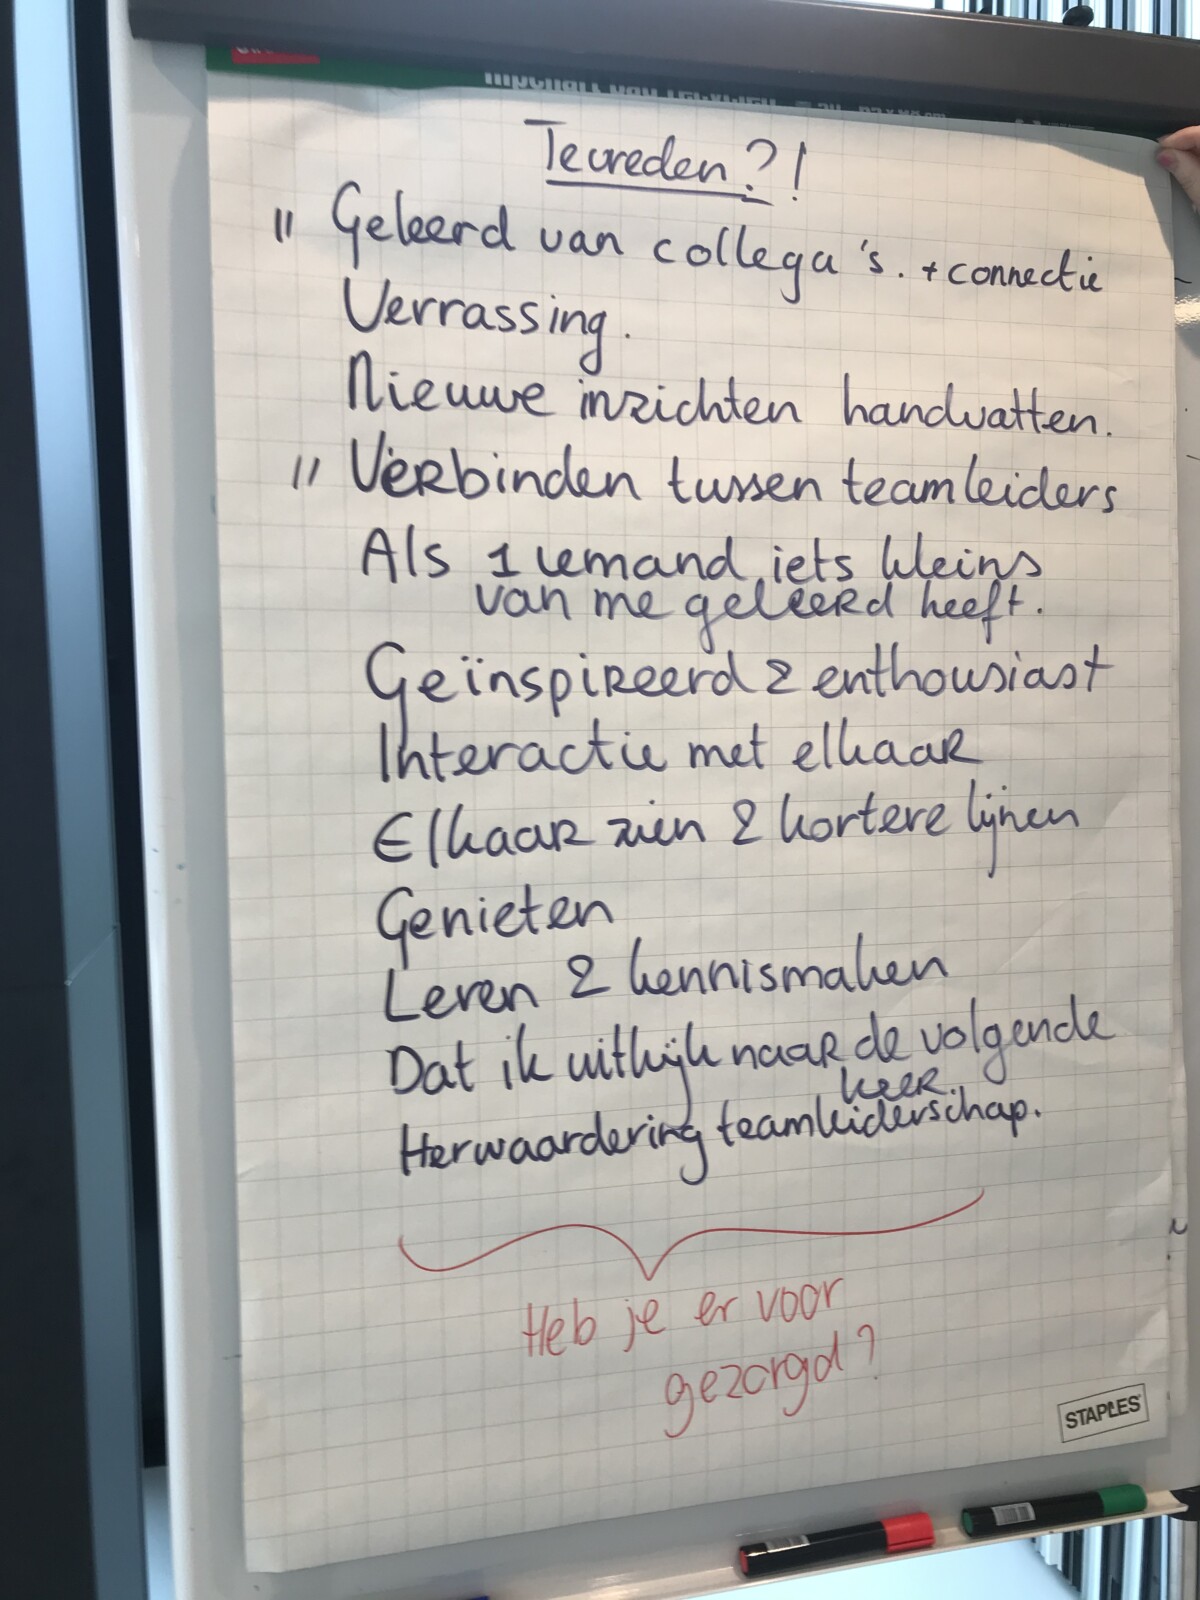 Tevreden?!
" Geleerd van collega's. + connectie
Verrassing.
Nieuwe inzichten handvatten.
" Verbinden tussen teamleiders
Als 1 iemand iets kleins
van me geleerd heeft.
Geïnspireerd & enthousiast
Interactie met elkaar
Elkaar zien & kortere lijnen
Genieten
Leren & kennismaken
Dat ik uitkijk naar de volgende
keer.
Herwaardering teamleiderschap.
Heb je er voor
gezorgd?
STAPLES